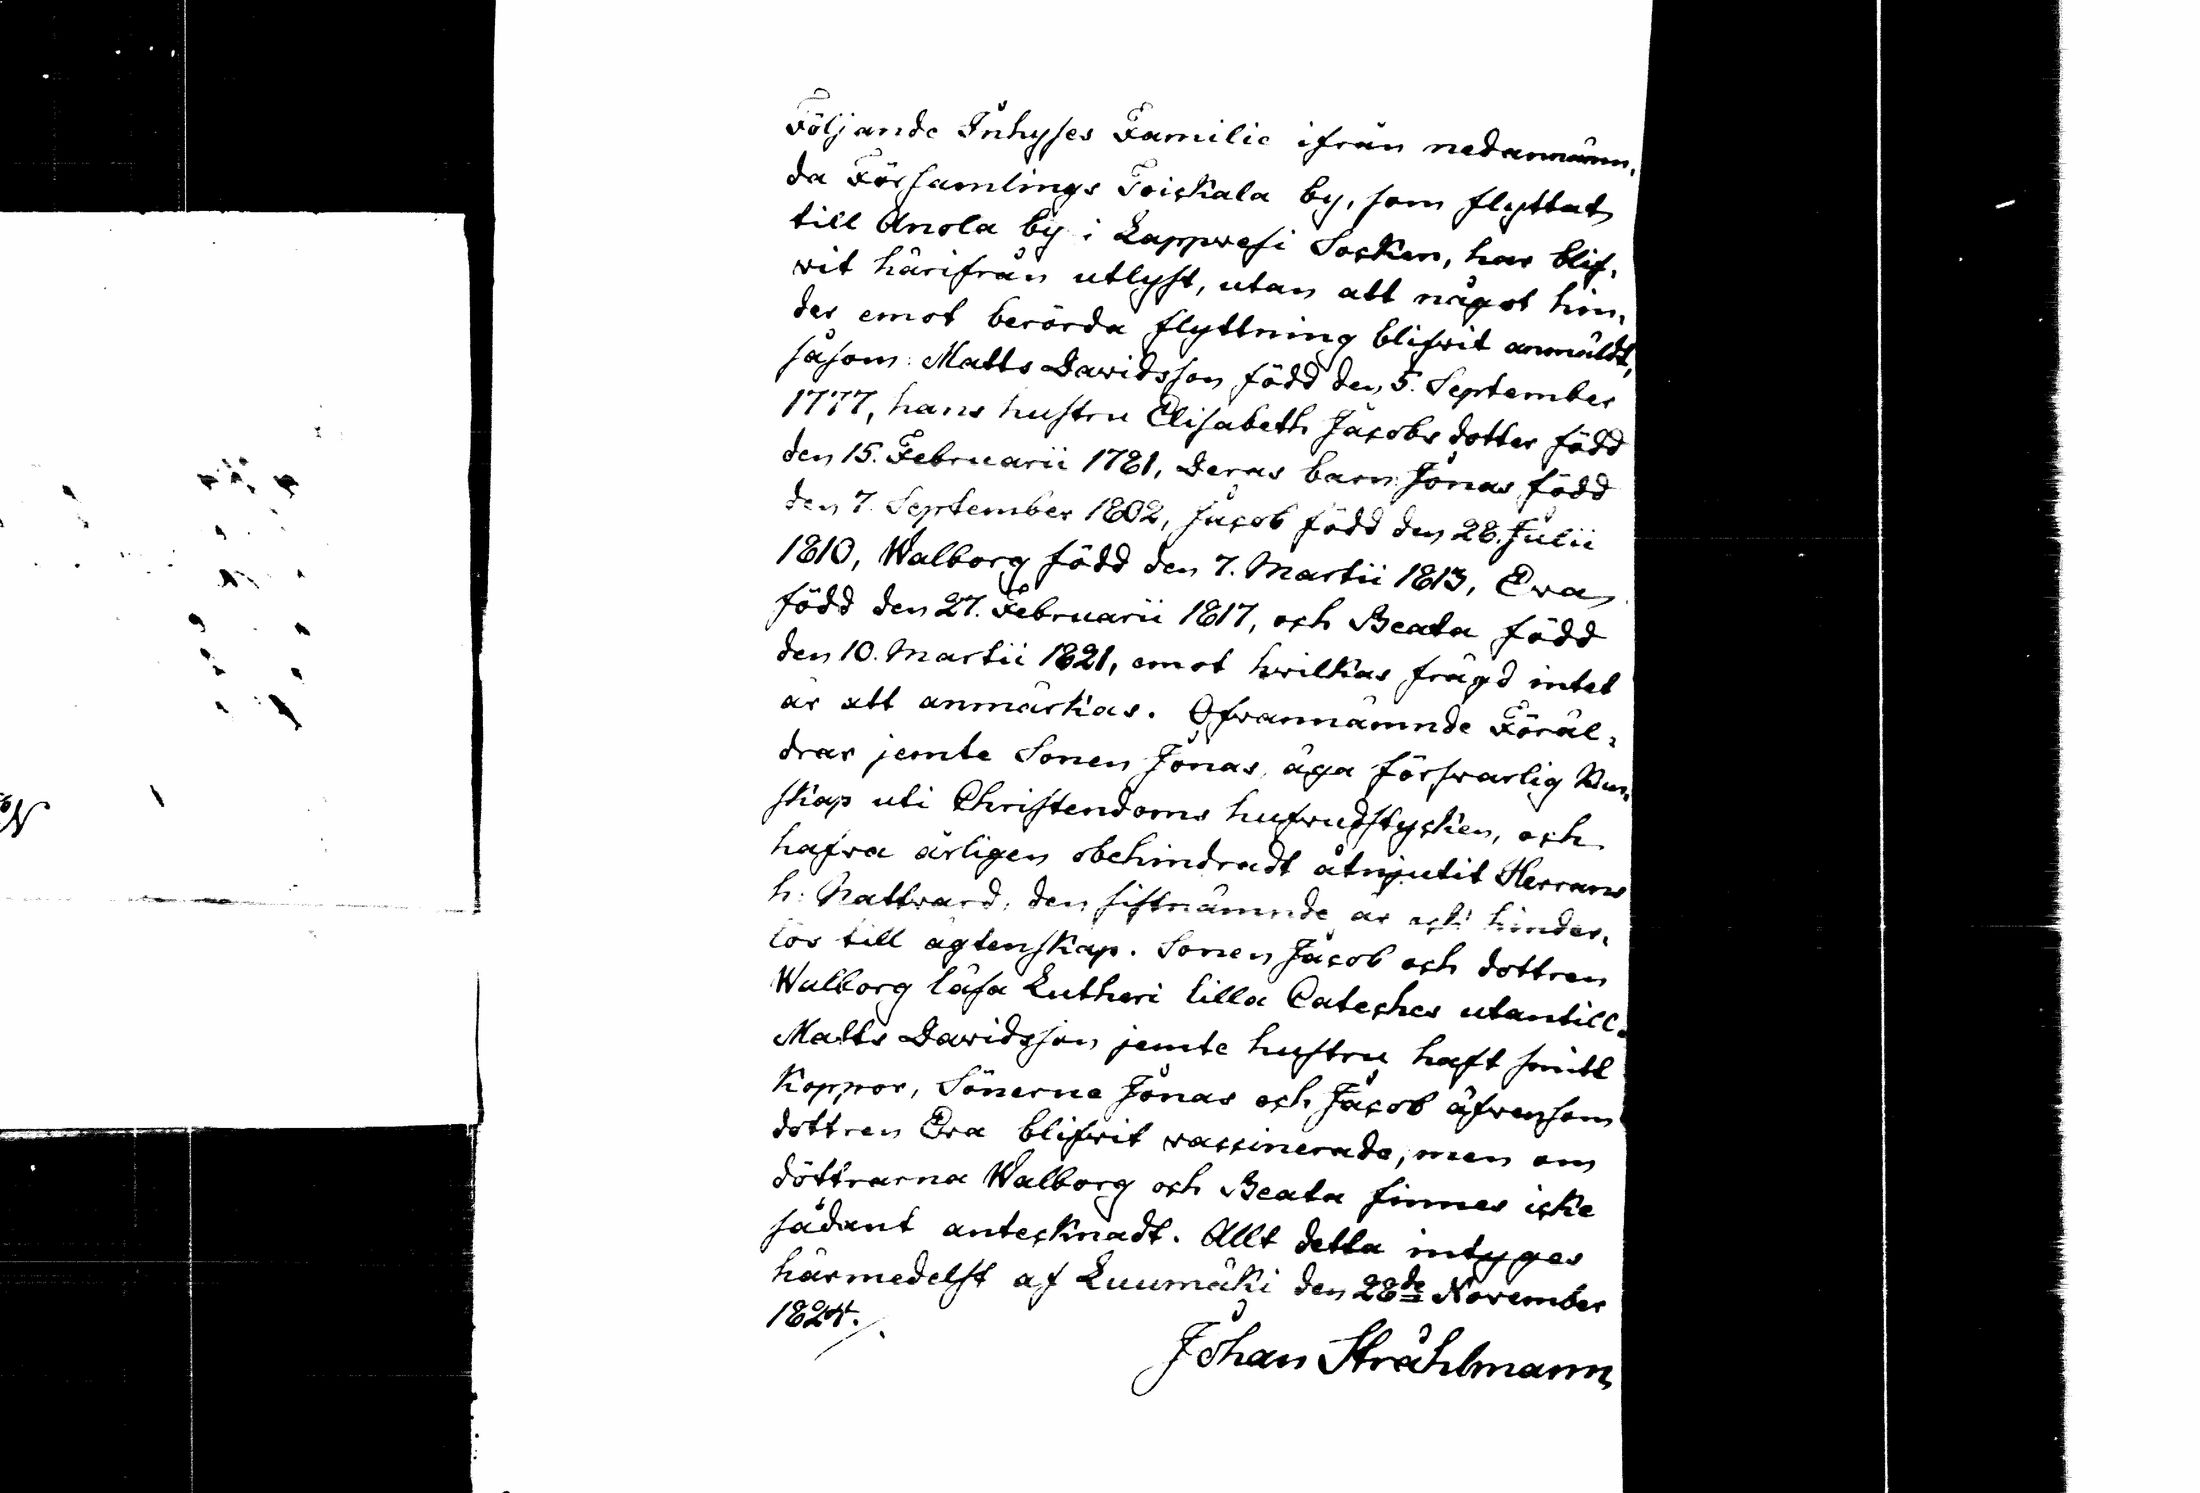 Följande Inhyses Familie ifrån nedannämn,
da Församlings Toiskala by, som flyttat
till Anola by i Lappvesi Socken, har blif,
vit härifrån utlyst, utan att något hin,
der emot berörda flyttning blifvit anmäldt,
såsom: Matts Davidsson född den 5. September
1777, hans hustru Elisabeth Jacobsdotter född
den 15. Februarii 1781, Deras barn: Jonas född
den 7. September 1802, Jacob född den 28. Julii
1810, Walborg född den 7. Martii 1813, Eva
född den 27. Februarii 1817, och Beata född
den 10. Martii 1821, emot hvilkas frägd intet
är att anmärkas. Ofvannämnde Föräl,
drar jemte Sonen Jonas, äga försvarlig kun,
skap uti Christendoms hufvudstycken, och
hafva årligen obehindradt åtnjutit Herrans
h: Nattvard, den sistnämnde är ock hinder,
lös till ägtenskap. Sonen Jacob och dottren
Walborg läsa Lutheri lilla Cateches utantill.
Matts Davidsson jemte hustru haft smitt
koppor, Sönerne Jonas och Jacob äfvensom
dottren Eva blifvit vaccinerade, men om
döttrarna Walborg och Beata finnes icke
sådant antecknadt. Allt detta intyges
härmedelst af Luumäki den 28de November
1824./.
Johan Stråhlmann